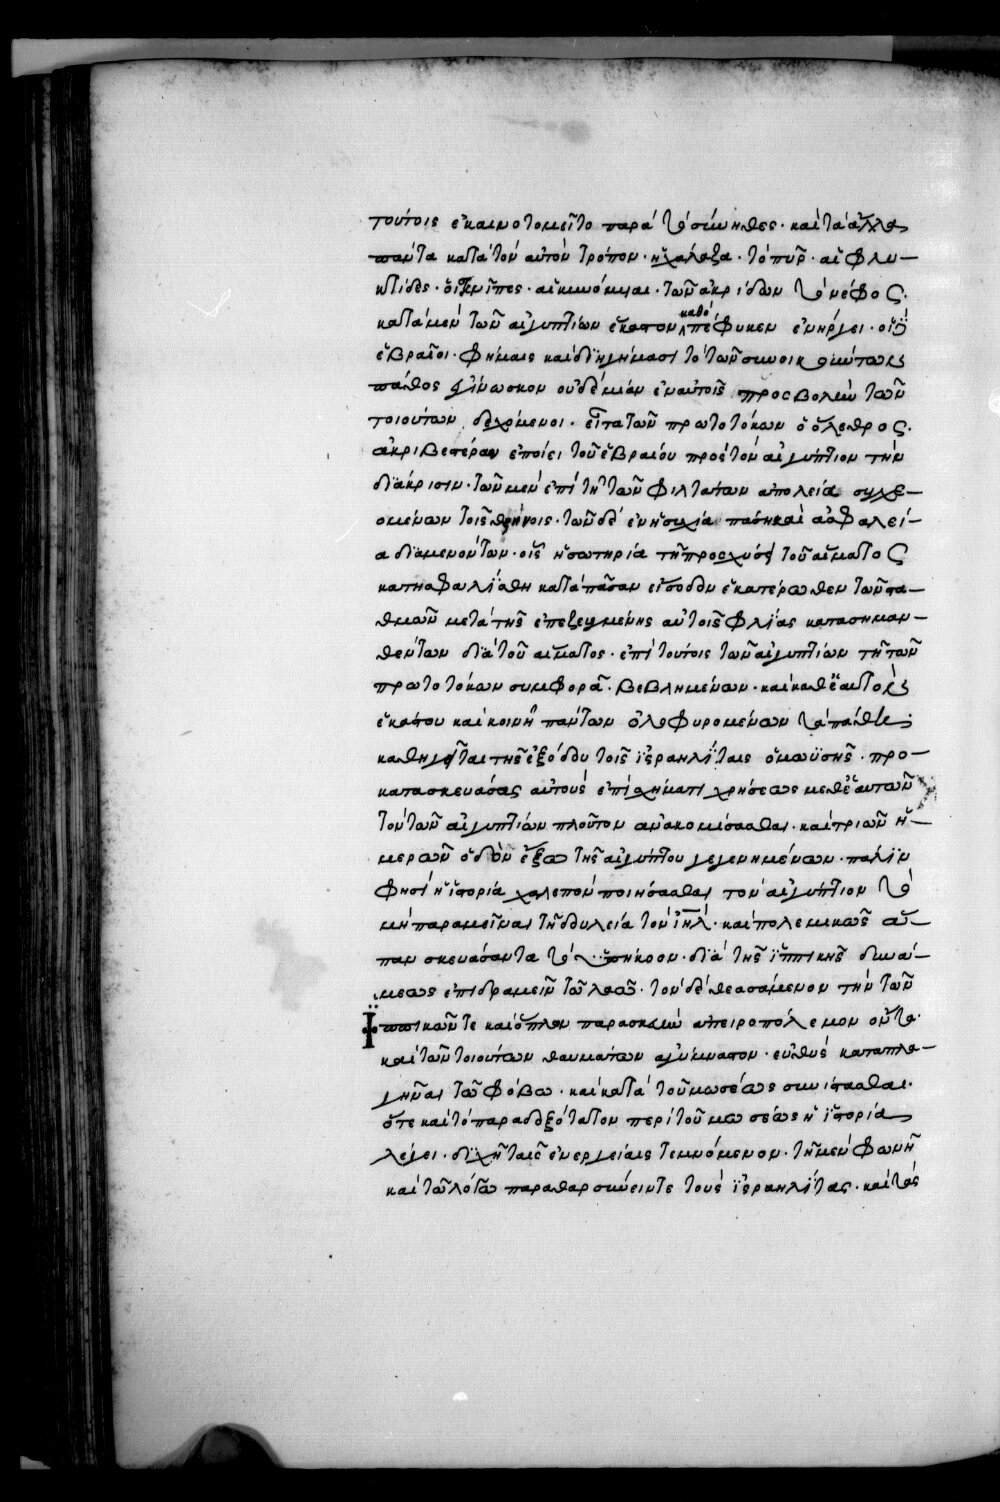 τούτοις ἐκαινοτομεῖτο παρὰ τὸ σύνηθες· καὶ τὰ ἄλλα
πάντα κατὰ τὸν αὐτὸν τρόπον· ἡ χάλαζα· τὸ πῦρ· αἱ φλυ-
κτίδες· οἱ σκνῖπες· αἱ κυνόμυιαι· τῶν ἀκρίδων τὸ νέφος·
κατὰ μὲν τῶν αἰγυπτίων ἕκαστον καθὸ πέφυκεν ἐνήργει· οἱ δὲ
ἑβραῖοι· φήμαις καὶ διηγήμασι τὸ τῶν συνοικούντων
πάθος ἐγίνωσκον οὐδεμίαν ἐν αὐτοῖς προσβολὴν τῶν
τοιούτων δεχόμενοι· εἶτα τῶν πρωτοτόκων ὁ ὄλεθρος·
ἀκριβεστέραν ἐποίει τοῦ ἑβραίου πρὸς τὸν αἰγύπτιον τὴν
διάκρισιν· τῶν μὲν ἐπὶ τῇ τῶν φιλτάτων ἀπολεία συγχε-
ομένων τοῖς θρήνοις· τῶν δὲ ἐν ἡσυχία πάση καὶ ἀσφαλεί-
α διαμενόντων· οἷς ἡ σωτηρία τῆ προσχύσει τοῦ αἵματος
κατησφαλίσθη κατὰ πᾶσαν εἴσοδον ἑκατέρωθεν τῶν στα-
θμῶν μετὰ τῆς ἐπεζευγμένης αὐτοῖς φλιᾶς κατασημαν-
θέντων διὰ τοῦ αἵματος· ἐπὶ τούτοις τῶν αἰγυπτίων τῆ τῶν
πρωτοτόκων συμφορᾶ βεβλημένων· καὶ καθ' ἑαυτοὺς
ἑκάστου καὶ κοινῆ πάντων ὀλοφυρομένων τὰ πάθη
καθηγεῖται τῆς ἐξόδου τοῖς ἰσραηλίταις ὁ μωϋσῆς· προ-
κατασκευάσας αὐτοὺς ἐπὶ σχήματι χρήσεως μεθ' ἑαυτῶν
τὸν τῶν αἰγυπτίων πλοῦτον ἀνακομίσασθαι· καὶ τριῶν ἡ-
μερῶν ὁδὸν ἔξω τῆς αἰγύπτου γεγενημένων· πάλιν
φησὶ ἡ ἱστορία χαλεπὸν ποιήσασθαι τὸν αἰγύπτιον τὸ
μὴ παραμεῖναι τῆ δουλεία τὸν ἰηλ· καὶ πολεμικῶς ἅ-
παν σκευάσαντα τὸ ὑπήκοον· διὰ τῆς ἱππικῆς δυνά-
μεως ἐπιδραμεῖν τῶ λαῶ· τὸν δὲ θεασάμενον τὴν τῶν
ἱππικῶν τε καὶ ὅπλων παρασκευὴν ἀπειροπόλεμον ὄντα·
καὶ τῶν τοιούτων θαυμάτων ἀγύμναστον· εὐθὺς καταπλα-
γῆναι τῶ φόβω· καὶ κατὰ τοῦ μωσέως συνίστασθαι·
ὅτε καὶ τὸ παραδοξότατον περὶ τοῦ μωσέως ἡ ἱστορία
λέγει· διχῆ ταῖς ἐνεργείαις τεμνόμενον· τῆ μὲν φωνῆ
καὶ τῶ λόγω παραθαρσύνειν τε τοὺς ἰσραηλίτας· καὶ τὰς